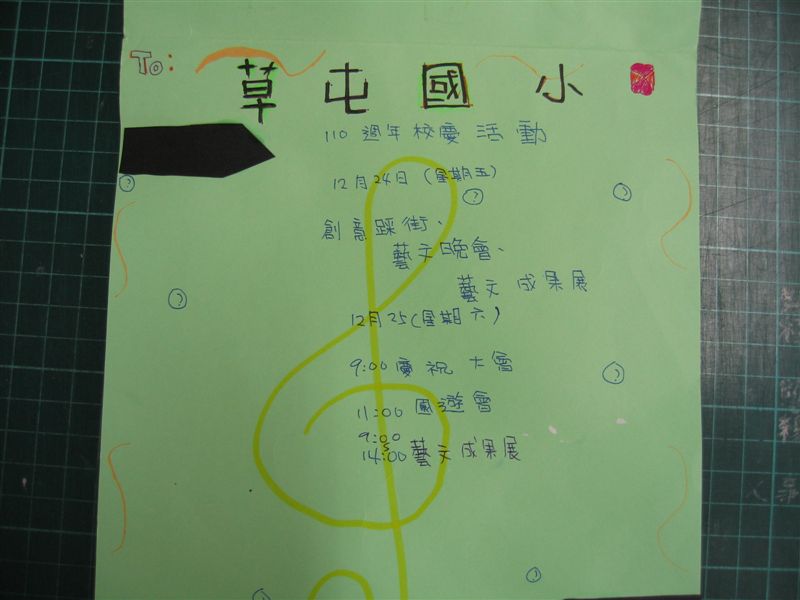 To:
草屯國小
110 週年校慶活動
12月24日 (星期五)
創意踩街、
藝文晚會、
藝文成果展
12月25(星期六)
9:00慶祝大會
11:00 園遊會
9:00
14:00 藝文成果展